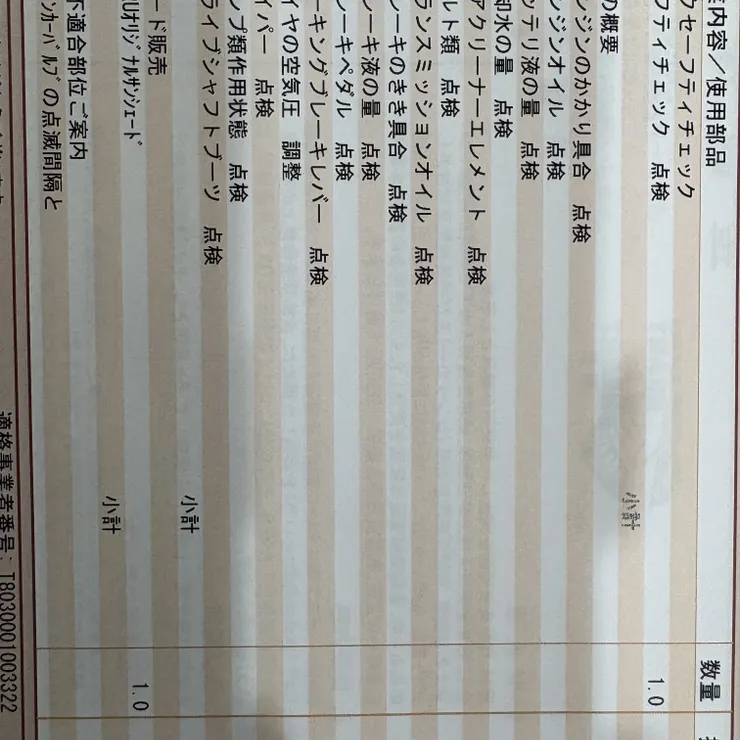 案内容／使用部品 数量
クセーフティチェック
フティチェック 点検 1.0
小計
の概要
ンジンのかかり具合 点検
ンジンオイル 点検
ッテリ液の量 点検
却水の量 点検
アクリーナーエレメント 点検
ルト類 点検
ランスミッションオイル 点検
レーキのきき具合 点検
レーキ液の量 点検
レーキペダル 点検
ーキングブレーキレバー 点検
イヤの空気圧 調整
イパー 点検
ンプ類作用状態 点検
ライブシャフトブーツ 点検
小計
ード販売
ルオリジナルサンシェード 1.0
小計
不適合部位ご案内
ンカーバルブの点滅間隔と
適格事業者番号: T8030001003322